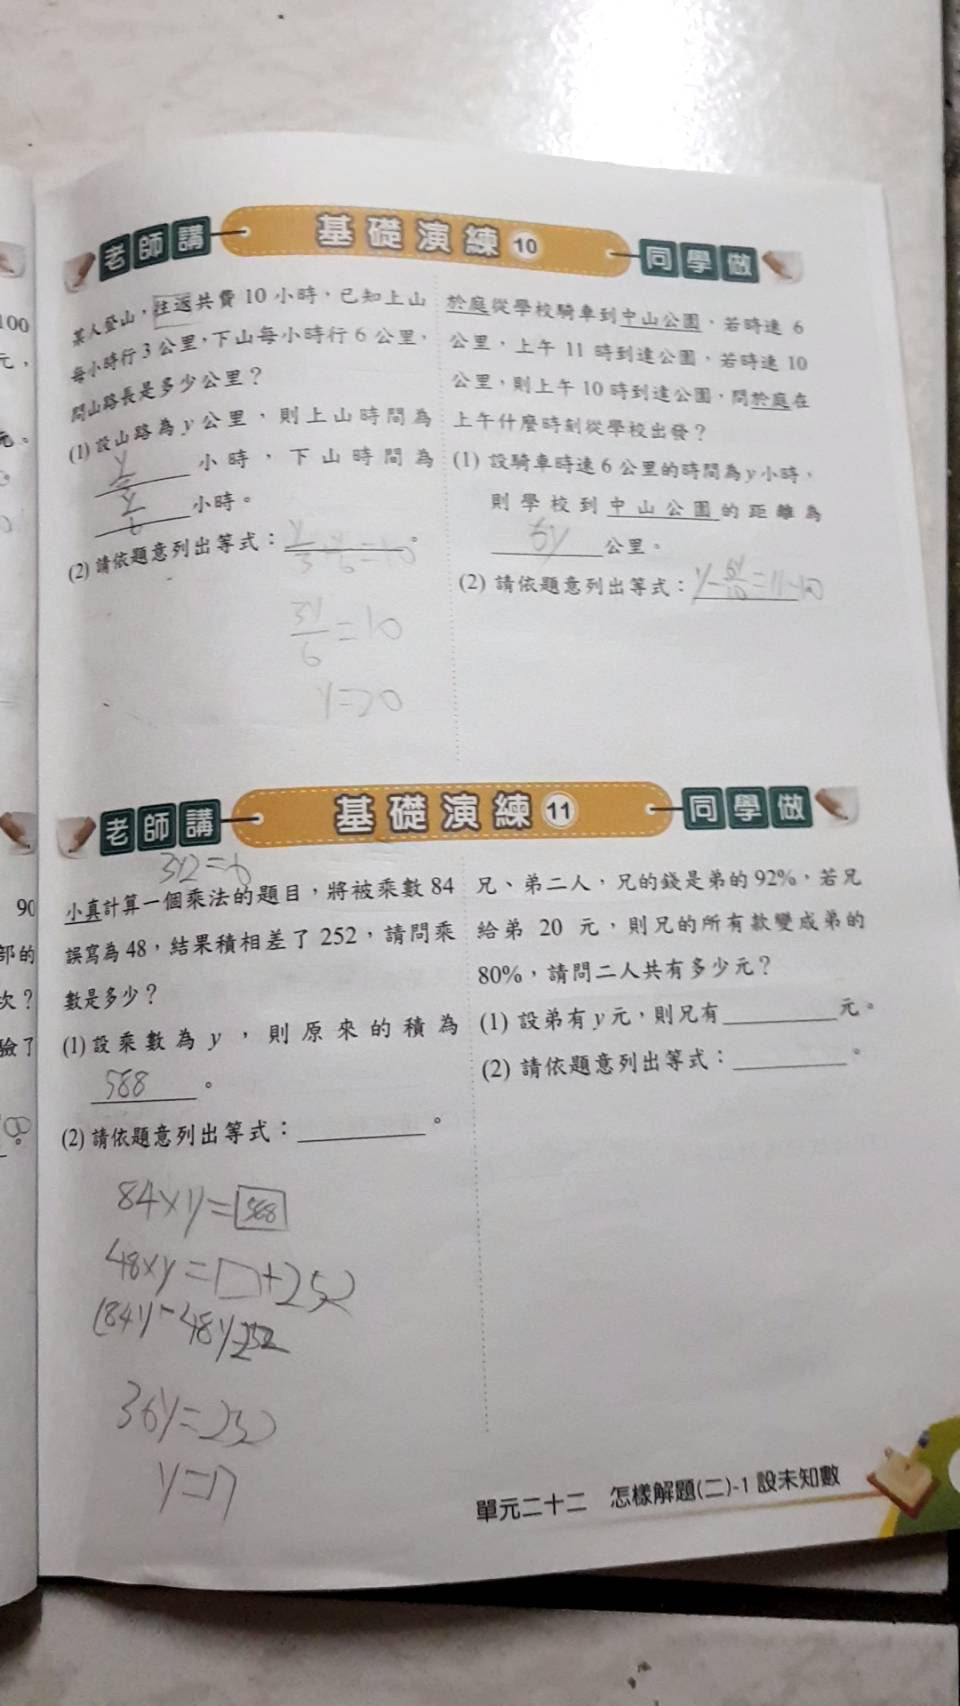 100
元，
元。
老師講 基礎演練 10 同學做
某人登山，往返共費 10 小時，已知上山
每小時行 3 公里，下山每小時行 6 公里，
問山路長是多少公里？
(1) 設山路為 y 公里，則上山時間為
y/3 小時，下山時間為
y/6 小時。
(2) 請依題意列出等式：y/3+y/6=10。
3y/6=10
y=20
於庭從學校騎車到中山公園，若時速 6
公里，上午 11 時到達公園，若時速 10
公里，則上午 10 時到達公園，問於庭在
上午什麼時刻從學校出發？
(1) 設騎車時速 6 公里的時間為 y 小時，
則學校到中山公園的距離為
6y 公里。
(2) 請依題意列出等式：y-6y/10=11-10
老師講 基礎演練 11 同學做
90
部的
次？
驗了
3y2=6
小真計算一個乘法的題目，將被乘數 84
誤寫為 48，結果積相差了 252，請問乘
數是多少？
(1) 設乘數為 y，則原來的積為
588。
(2) 請依題意列出等式：。
84×y=588
48×y=□+252
(84y-48y=252
36y=252
y=7
兄、弟二人，兄的錢是弟的 92%，若兄
給弟 20 元，則兄的所有款變成弟的
80%，請問二人共有多少元？
(1) 設弟有 y 元，則兄有元。
(2) 請依題意列出等式：。
單元二十二 怎樣解題(二)-1 設未知數